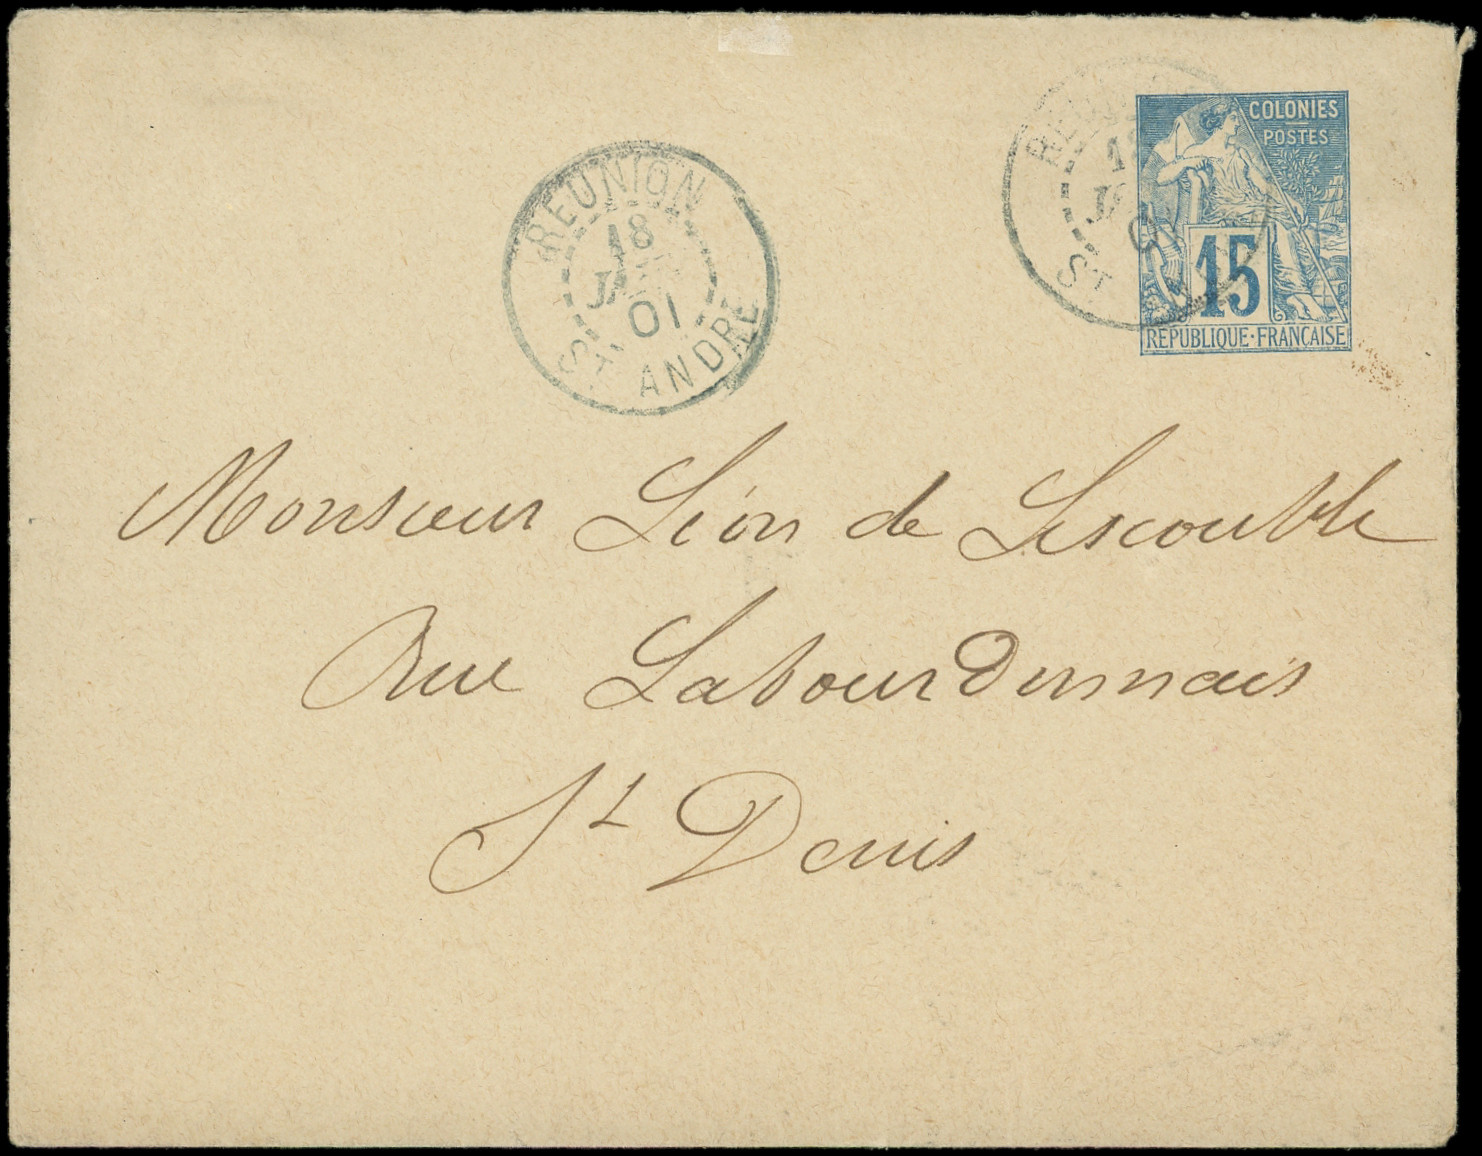 REUNION
18
JANV
01
ST ANDRE
REUNION
18
01
ST
COLONIES
POSTES
15
REPUBLIQUE·FRANCAISE
Monsieur Léon de Lescouble
Rue Labourdonnais
St Denis